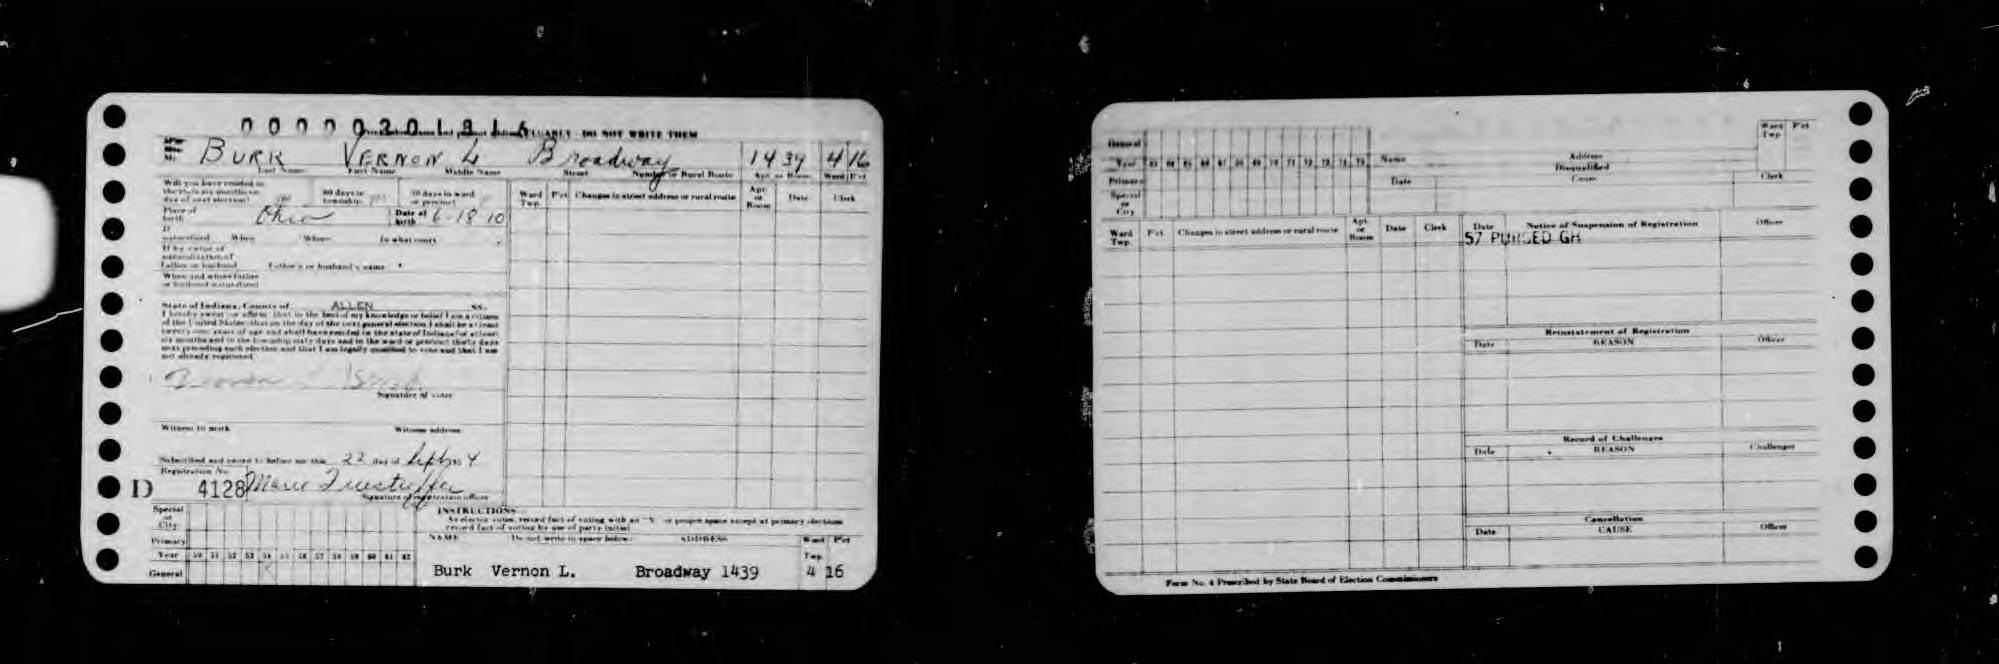 00000201816
BURK VERNON L Broadway 1439 4 16
Last Name First Name Middle Name Street Number or Rural Route Apt. or Room Ward Pct
Will you have resided in
the state six months on
day of next election?
60 days in
township
30 days in ward
or precinct
Place of
birth Ohio Date of
birth 6-18-10
If
naturalized When Where In what court
If by virtue of
naturalization of
father or husband Father's or husband's name
When and where father
or husband naturalized
State of Indiana, County of ALLEN ss.
I hereby swear or affirm that to the best of my knowledge or belief I am a citizen
of the United States that on the day of the next general election I shall be at least
twenty-one years of age and shall have resided in the state of Indiana for at least
six months and in the township sixty days and in the ward or precinct thirty days
next preceding such election and that I am legally qualified to vote and that I am
not already registered
Signature of voter
Witness to mark Witness address
Subscribed and sworn to before me this 22 day of Sept 4
Registration No.
D 4128 Marie
Signature of registration officer
Ward
Twp. Pct. Changes in street address or rural route Apt
or
Room Date Clerk
Special
or
City
Primary
Year 50 51 52 53 54 55 56 57 58 59 60 61 62
General
INSTRUCTIONS
As elector votes, record fact of voting with an "X" in proper space except at primary elections
record fact of voting by use of party initial
NAME Do not write in space below ADDRESS Ward Pct
Twp
Burk Vernon L. Broadway 1439 4 16
General
Year 63 64 65 66 67 68 69 70 71 72 73 74 75
Primary
Special
or
City
Name Address Ward
Twp Pct
Disqualified
Date Cause Clerk
Ward
Twp. Pct. Changes in street address or rural route Apt
or
Room Date Clerk
Date Notice of Suspension of Registration Officer
57 PURGED GH
Reinstatement of Registration
Date REASON Officer
Record of Challenges
Date REASON Challenger
Cancellation
Date CAUSE Officer
Form No. 4 Prescribed by State Board of Election Commissioners